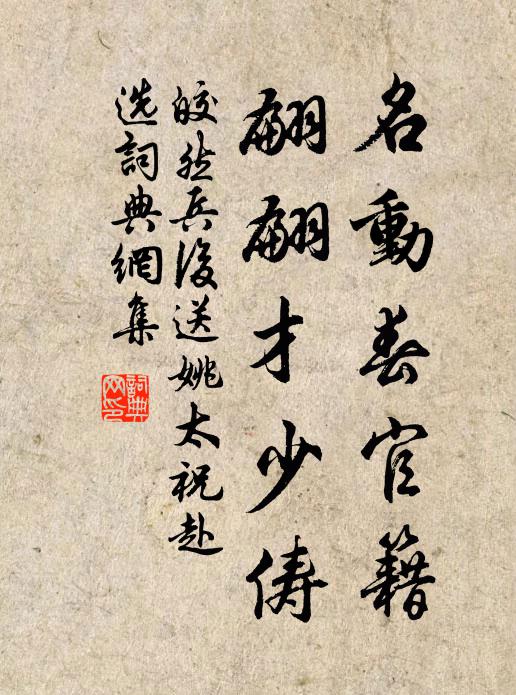 名動春官籍
翩翩才少俦
皎然兵後送姚太祝赴
選詞典網集
詞典网印